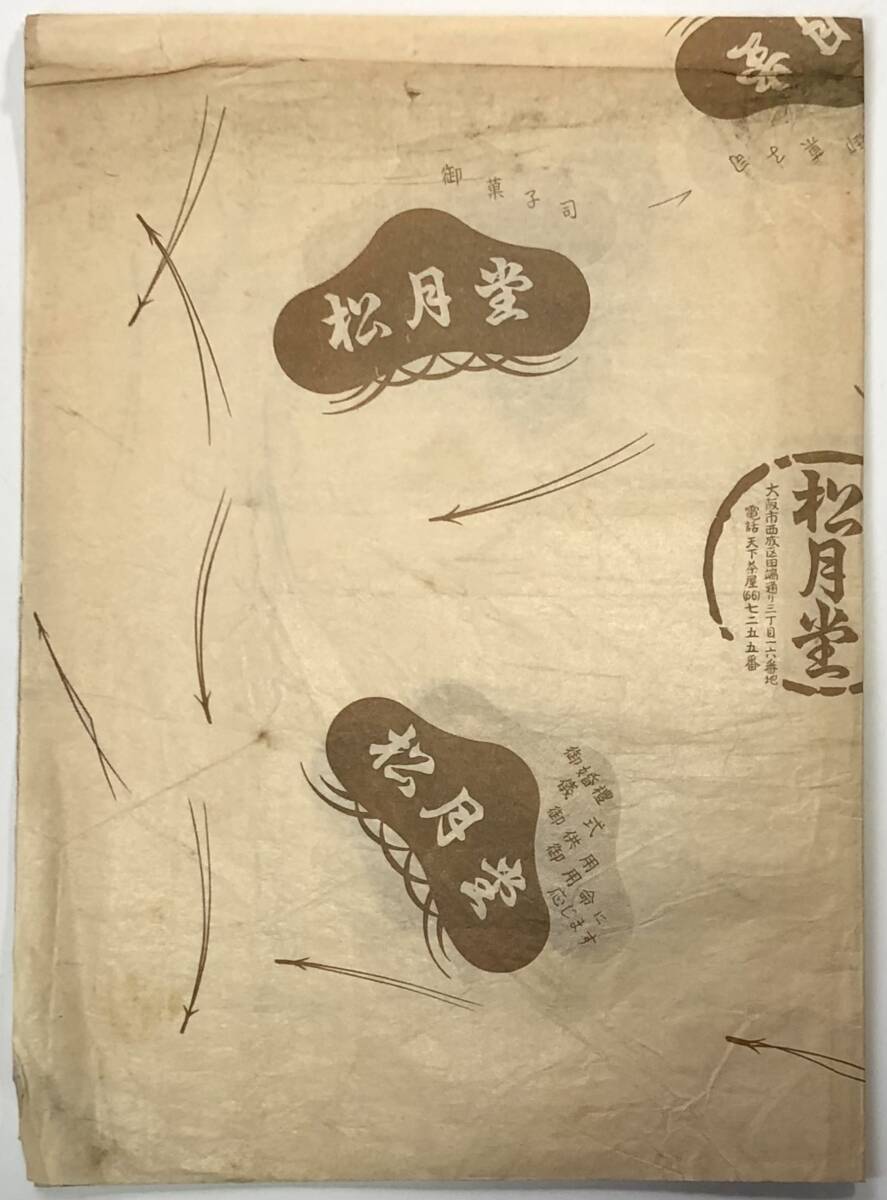 月堂
御菓子司
御菓子司
松月堂
松月堂
大阪市西成区田端通り三丁目一六番地
電話 天下茶屋(66)七二五五番
松月堂
御婚禮
儀式
御供用
御用命に
応じます